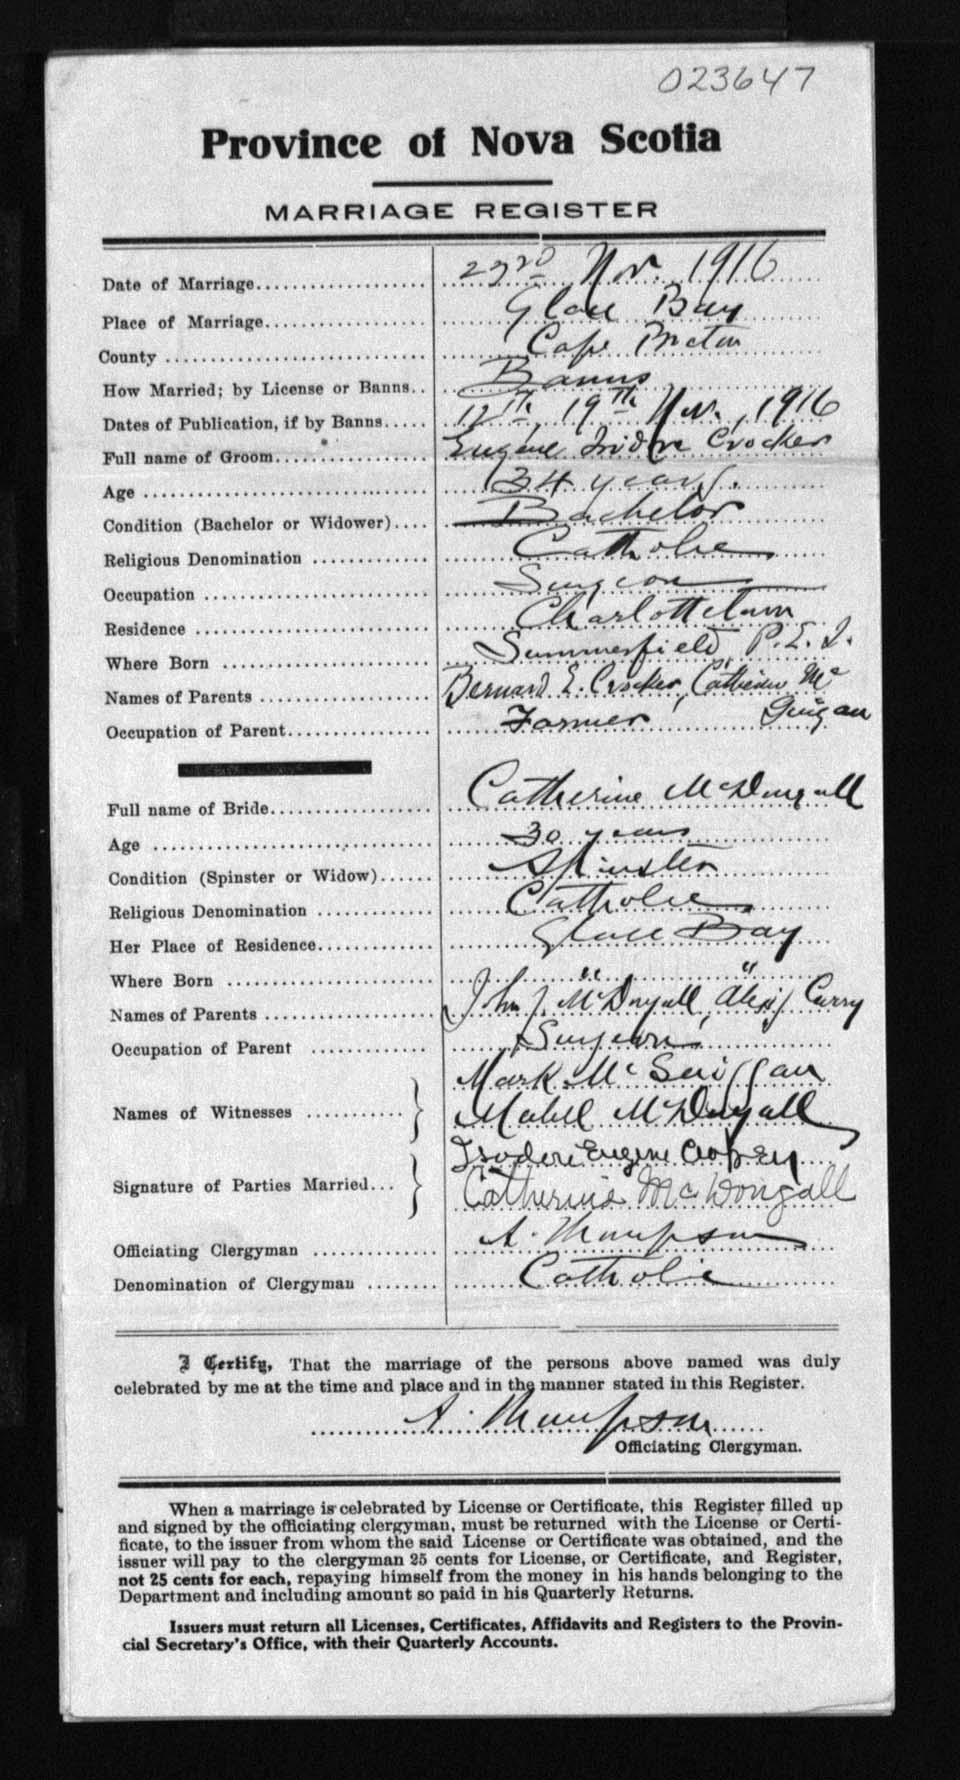 023647
Province of Nova Scotia
MARRIAGE REGISTER
Date of Marriage 23rd Nov. 1916
Place of Marriage Glace Bay
County Cape Breton
How Married; by License or Banns Banns
Dates of Publication, if by Banns 12th, 19th Nov., 1916
Full name of Groom Eugene Isidore Crocker
Age 34 years.
Condition (Bachelor or Widower) Bachelor
Religious Denomination Catholic
Occupation Surgeon
Residence Charlottetown
Where Born Summerfield P.E.I.
Names of Parents Bernard E. Crocker, Catherine Mc
Guigan
Occupation of Parent Farmer
Full name of Bride Catherine McDougall
Age 30 years
Condition (Spinster or Widow) Spinster
Religious Denomination Catholic
Her Place of Residence Glace Bay
Where Born " "
Names of Parents John J. McDougall, Curry
Occupation of Parent Surgeon
Names of Witnesses Mark
Mabel McDougall
Signature of Parties Married Isodore Eugene
Catherine McDougall
Officiating Clergyman A. Thompson
Denomination of Clergyman Catholic
I Certify, That the marriage of the persons above named was duly
celebrated by me at the time and place and in the manner stated in this Register.
A. Thompson
Officiating Clergyman.
When a marriage is celebrated by License or Certificate, this Register filled up
and signed by the officiating clergyman, must be returned with the License or Certi-
ficate, to the issuer from whom the said License or Certificate was obtained, and the
issuer will pay to the clergyman 25 cents for License, or Certificate, and Register,
not 25 cents for each, repaying himself from the money in his hands belonging to the
Department and including amount so paid in his Quarterly Returns.
Issuers must return all Licenses, Certificates, Affidavits and Registers to the Provin-
cial Secretary's Office, with their Quarterly Accounts.